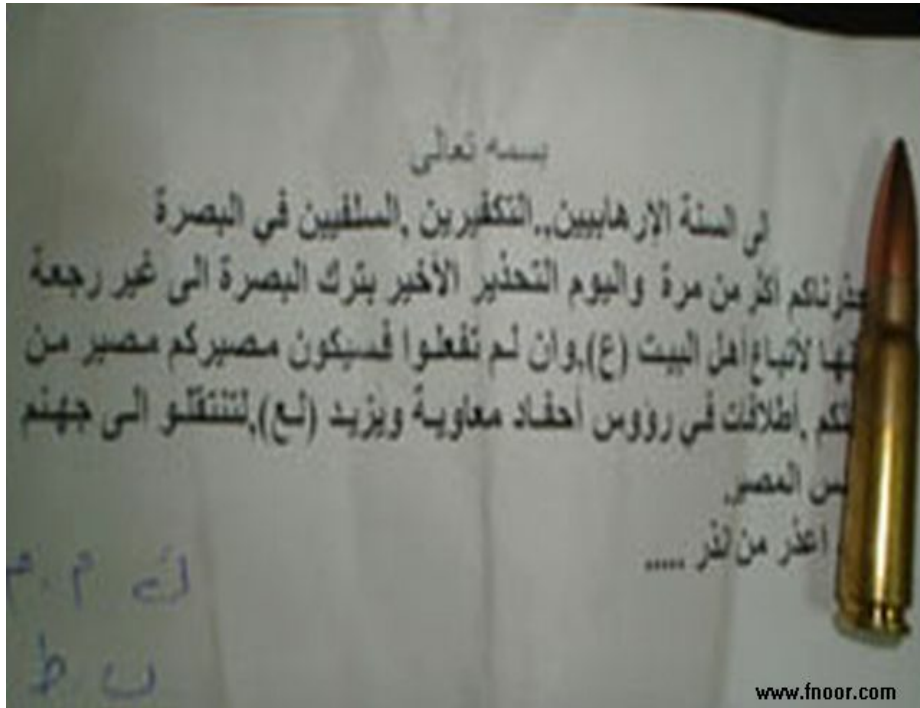 بسمه تعالى
لى السنة الإرهابيين,,التكفيرين ,السلفيين في البصرة
ذرناكم اكثر من مرة واليوم التحذير الأخير بترك البصرة الى غير رجعة
نها لأتباع أهل البيت (ع),وان لم تفعلوا فسيكون مصيركم مصير من
لكم ,أطلاقات في رؤوس أحفاد معاوية ويزيد (لع),لتنتقلو الى جهنم
ئس المصير,
اعذر من انذر .....
ك م . م
ب ط
www.fnoor.com